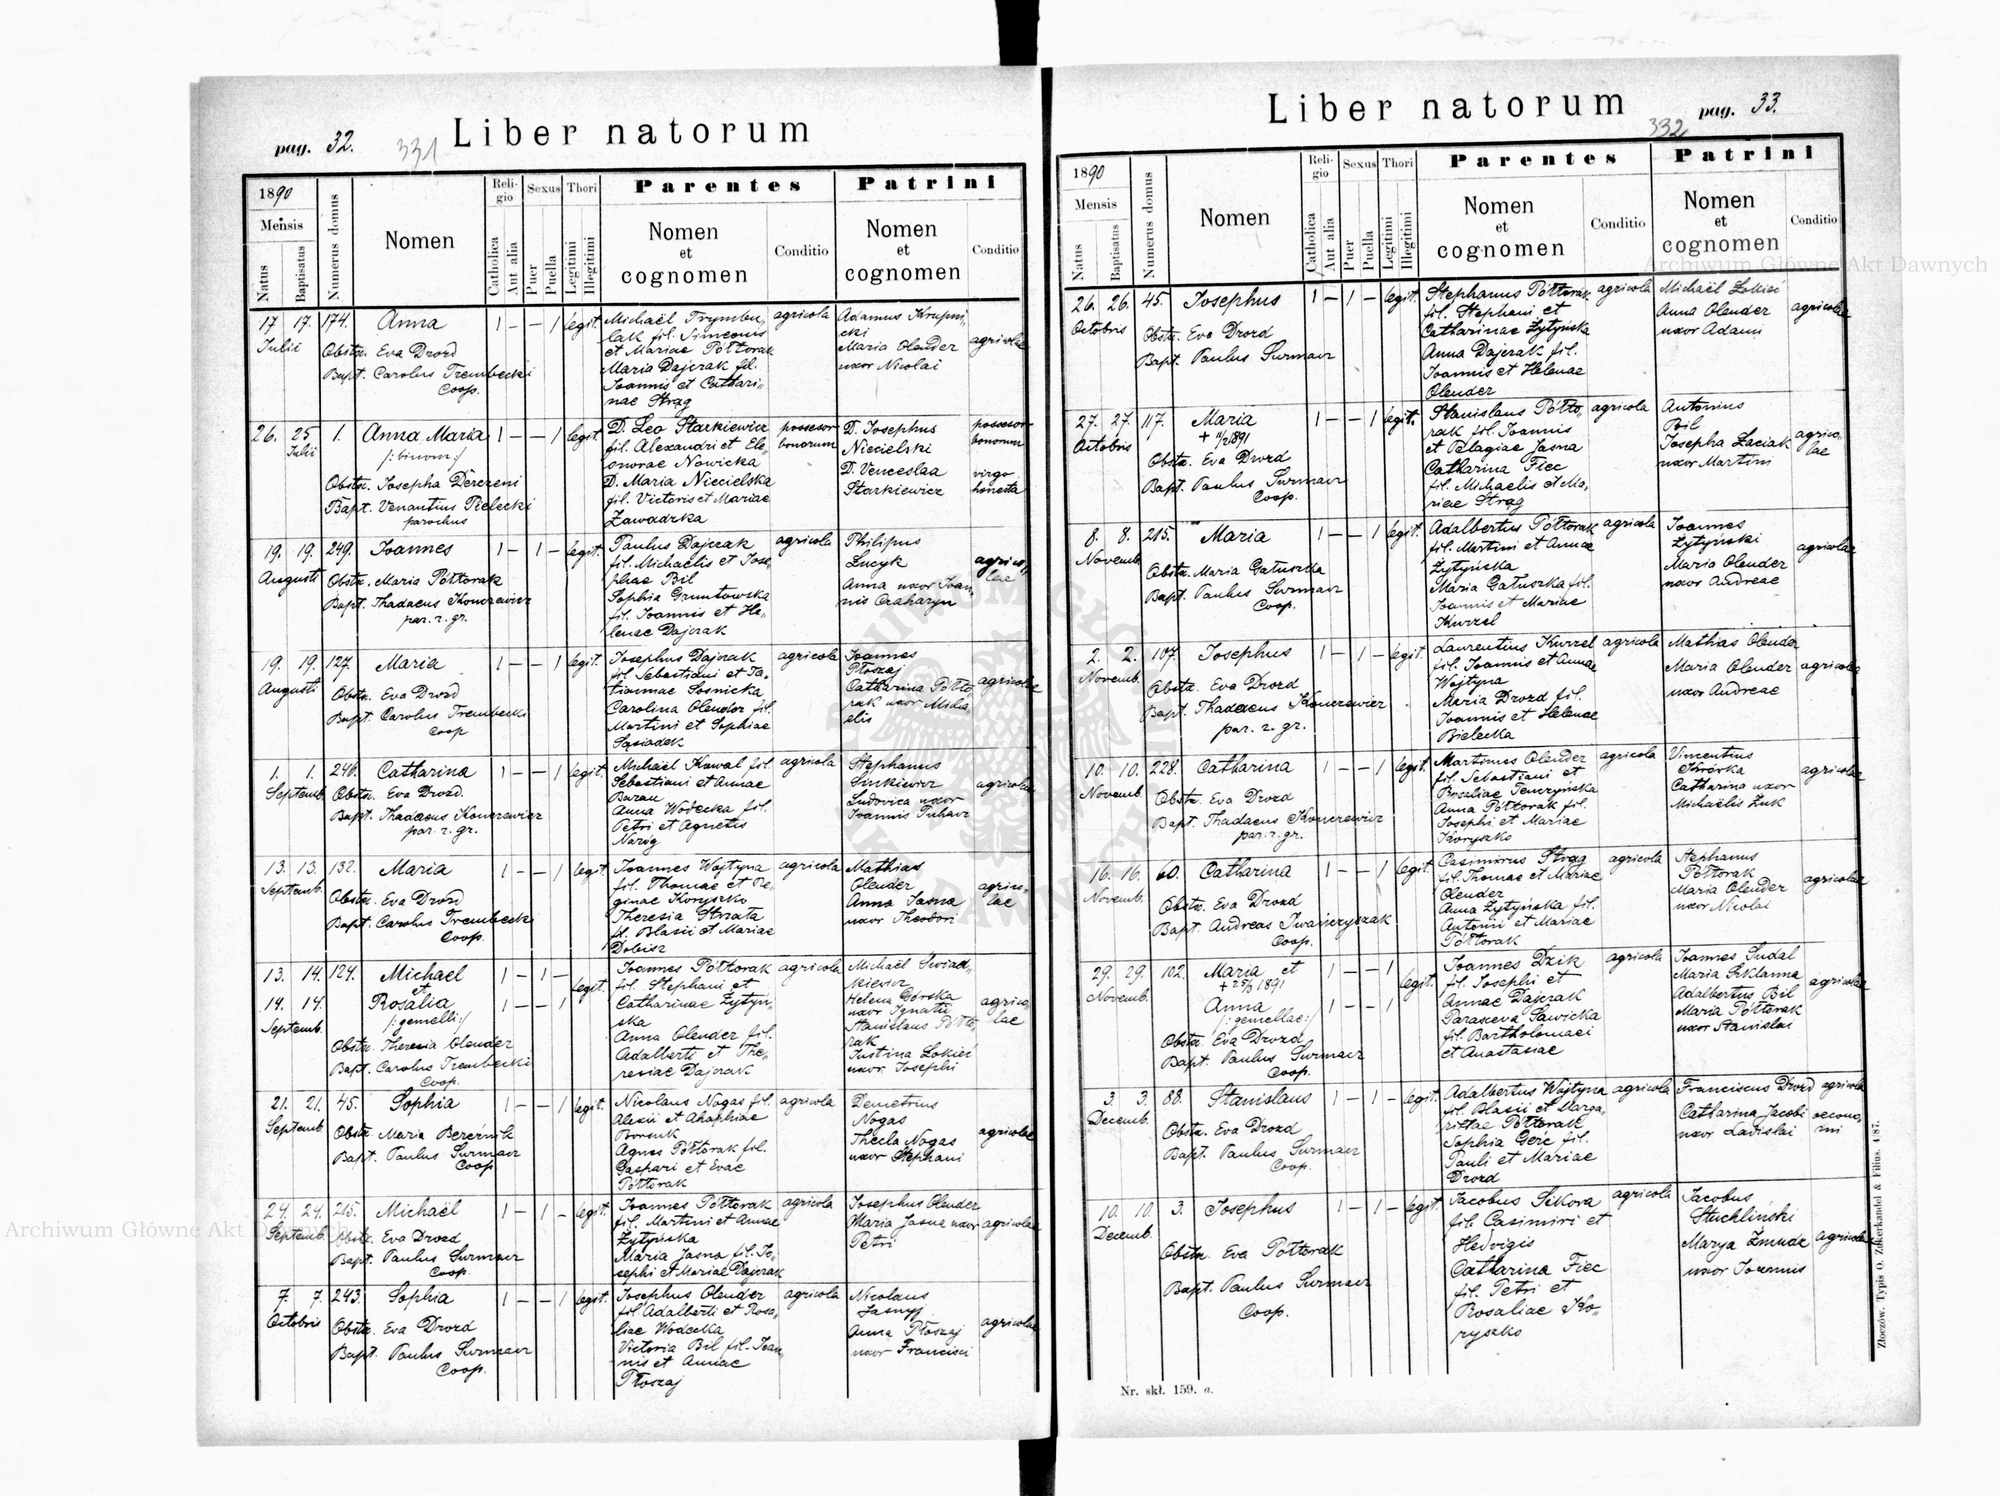 pag. 32. 331 Liber natorum
1890
Mensis
Natus
Baptisatus
Numerus domus
Nomen
Religio
Catholica
Aut alia
Sexus
Puer
Puella
Thori
Legitimi
Illegitimi
Parentes
Nomen
et
cognomen
Conditio
Patrini
Nomen
et
cognomen
Conditio
17 17. 174. Anna 1 – – 1 legit.
Julii
Obstx. Eva Drozd
Bapt. Carolus Trembecki
Coop.
Michaël Trymbu„
lak fil. Simeonis
et Mariae Półtorak
Maria Dajczak fil.
Joannis et Cathari„
nae Strąg
agricola
Adamus Krupni„
cki
Maria Olender
uxor Nicolai
agricolae
26. 25 1. Anna Maria 1 – – 1 legit.
Julii
/:binom:/
Obstx. Josepha
Bapt. Venantius Pielecki
parochus
D. Leo Starkiewicz
fil. Alexandri et Ele„
onorae Nowicka
D. Maria Niecielska
fil. Victoris et Mariae
Zawadzka
possesor
bonorum
D. Josephus
Niecielski
D. Venceslaa
Starkiewicz
possesor
bonorum
virgo
honesta
19. 19. 249. Joannes 1 – 1 – legit.
Augusti
Obstx. Maria Półtorak
Bapt. Thadaeus Konczewicz
par. r. gr.
Paulus Dajczak
fil. Michaëlis et Jose„
phae Bil
Sophia Gruntowska
fil. Joannis et He„
lenae Dajczak
agricola
Philipus
Lucyk
Anna uxor Joan„
nis Czaharyn
agrico„
lae
19. 19. 127. Maria 1 – – 1 legit.
Augusti
Obstx. Eva Drozd
Bapt. Carolus Trembecki
Coop
Josephus Dajczak
fil. Sebastiani et Ta„
tiannae Sosnicka
Carolina Olender fil.
Martini et Sophiae
Sąsiadek
agricola
Joannes
Płoszaj
Catharina Półto„
rak uxor Micha
elis
agricolae
1. 1. 246. Catharina 1 – – 1 legit.
Septemb.
Obstx. Eva Drozd.
Bapt. Thadaeus Konczewicz
par. r. gr.
Michaël Kowal fil.
Sebastiani et Annae
Baran
Anna Wodecka fil.
Petri et Agnetis
Naróg
agricola
Stephanus
Sinkiewicz
Ludovica uxor
Joannis Puhacz
agricolae
13. 13. 132. Maria 1 – – 1 legit.
Septemb.
Obstx. Eva Drozd
Bapt. Carolus Trembecki
Coop.
Joannes Wojtyna
fil. Thomae et Re„
ginae Koryszko
Theresia Strzata
fil. Blasii et Mariae
Dobisz
agricola
Mathias
Olender
Anna Jasna
uxor Theodori
agrico„
lae
13. 14. 124. Michael 1 – 1 –
et legit.
14. 14. Rosalia 1 – – 1
Septemb.
/:gemelli:/
Obstx. Theresia Olender
Bapt. Carolus Trembecki
Coop.
Joannes Półtorak
fil. Stephani et
Catharinae Żytyń„
ska
Anna Olender fil.
Adalberti et The„
resiae Dajczak
agricola
Michaël Swiad„
kiewicz
Helena Górska
uxor Ignatii
Stanislaus Półto„
rak
Justina Łokieć
uxor Josephi
agrico„
lae
21. 21. 45. Sophia 1 – – 1 legit.
Septemb.
Obstx. Maria Bereźnik
Bapt. Paulus Surmacz
Coop
Nicolaus Nogas fil.
Alexii et Ahaphiae
Borsuk
Agnes Półtorak fil.
Gaspari et Evae
Półtorak
agricola
Demetrius
Nogas
Thecla Nogas
uxor Stephani
agricolae
24. 24. 215. Michaël 1 – 1 – legit.
Septemb.
Obstx. Eva Drozd
Bapt. Paulus Surmacz
Coop.
Joannes Półtorak
fil. Martini et Annae
Żytyńska
Maria Jasna fil. Jo„
sephi et Mariae Dajczak
agricola
Josephus Olender
Maria Jasna uxor
Petri
agricolae
7. 7. 243. Sophia 1 – – 1 legit.
Octobris
Obstx. Eva Drozd
Bapt. Paulus Surmacz
Coop.
Josephus Olender
fil. Adalberti et Rosa„
liae Wodecka
Victoria Bil fil. Joan„
nis et Annae
Płoszaj
agricola
Nicolaus
Jasnyj
Anna Płoszaj
uxor Francisci
agricolae
Liber natorum 332 pag. 33.
1890
Mensis
Natus
Baptisatus
Numerus domus
Nomen
Religio
Catholica
Aut alia
Sexus
Puer
Puella
Thori
Legitimi
Illegitimi
Parentes
Nomen
et
cognomen
Conditio
Patrini
Nomen
et
cognomen
Conditio
26. 26. 45. Josephus 1 – 1 – legit.
Octobris
Obstx. Eva Drozd
Bapt. Paulus Surmacz
Stephanus Półtorak
fil. Stephani et
Catharinae Żytyńska
Anna Dajczak fil.
Joannis et Helenae
Olender
agricola
Michaël Łokieć
Anna Olender
uxor Adami
agricolae
27. 27. 117. Maria 1 – – 1 legit.
Octobris
Obstx. Eva Drozd
Bapt. Paulus Surmacz
Coop.
Stanislaus Półto„
rak fil. Joannis
et Pelagiae Jasna
Catharina Fiec
fil. Michaelis et Ma„
riae Strąg
agricola
Antonius
Bil
Josepha Łaciak
uxor Martini
agrico„
lae
8. 8. 215. Maria 1 – – 1 legit.
Novemb.
Obstx. Maria Gałuszka
Bapt. Paulus Surmacz
Coop.
Adalbertus Półtorak
fil. Martini et Annae
Żytyńska
Maria Gałuszka fil.
Joannis et Mariae
Kurzel
agricola
Joannes
Żytyński
Maria Olender
uxor Andreae
agricolae
2. 2. 107. Josephus 1 – 1 – legit.
Novemb.
Obstx. Eva Drozd
Bapt. Thadaeus Konczewicz
par. r. gr.
Laurentius Kurzel
fil. Joannis et Annae
Wojtyna
Maria Drozd fil.
Joannis et Helenae
Bielecka
agricola
Mathias Olender
Maria Olender
uxor Andreae
agricolae
10. 10. 228. Catharina 1 – – 1 legit.
Novemb.
Obstx. Eva Drozd
Bapt. Thadaeus Konczewicz
par. r. gr.
Martinus Olender
fil. Sebastiani et
Rosaliae Tenczyńska
Anna Półtorak fil.
Josephi et Mariae
Koryszko
agricola
Vincentius
Skrórka
Catharina uxor
Michaëlis Żuk
agricolae
16. 16. 60. Catharina 1 – – 1 legit.
Novemb.
Obstx. Eva Drozd
Bapt. Andreas Iwańczyszak
Coop.
Casimirus Strąg
fil. Thomae et Mariae
Olender
Anna Żytyńska fil.
Antonii et Mariae
Półtorak
agricola
Stephanus
Półtorak
Maria Olender
uxor Nicolai
agricolae
29. 29. 102. Maria et 1 – – 1
Novemb. legit.
Anna 1 – – 1
/:gemellae:/
Obstx. Eva Drozd
Bapt. Paulus Surmacz
Coop.
Joannes Dzik
fil. Josephi et
Annae Dajczak
Paraxeva Sawicka
fil. Bartholomaei
et Anastasiae
agricola
Joannes Sudal
Maria Szklanna
Adalbertus Bil
Maria Półtorak
uxor Stanislai
agricolae
3. 3. 88. Stanislaus 1 – 1 – legit.
Decemb.
Obstx. Eva Drozd
Bapt. Paulus Surmacz
Coop.
Adalbertus Wojtyna
fil. Blasii et Marga„
rittae Półtorak
Sophia Gerc fil.
Pauli et Mariae
Drozd
agricola
Franciscus Drozd
Catharina Jacobi
uxor Ladislai
agricola
oecono„
mi
10. 10. 3. Josephus 1 – 1 – legit.
Decemb.
Obstx. Eva Półtorak
Bapt. Paulus Surmacz
Coop.
Jacobus Sikora
fil. Casimiri et
Hedvigis
Catharina Fiec
fil. Petri et
Rosaliae Ko„
ryszko
agricola
Jacobus
Stuchliński
Marya Żmuda
uxor Joannis
agricolae
Nr. skł. 159. a.
Złoczów. Typis O. Zukerkandel & Filius. 4/87.
Archiwum Główne Akt Dawnych
Archiwum Główne Akt Dawnych